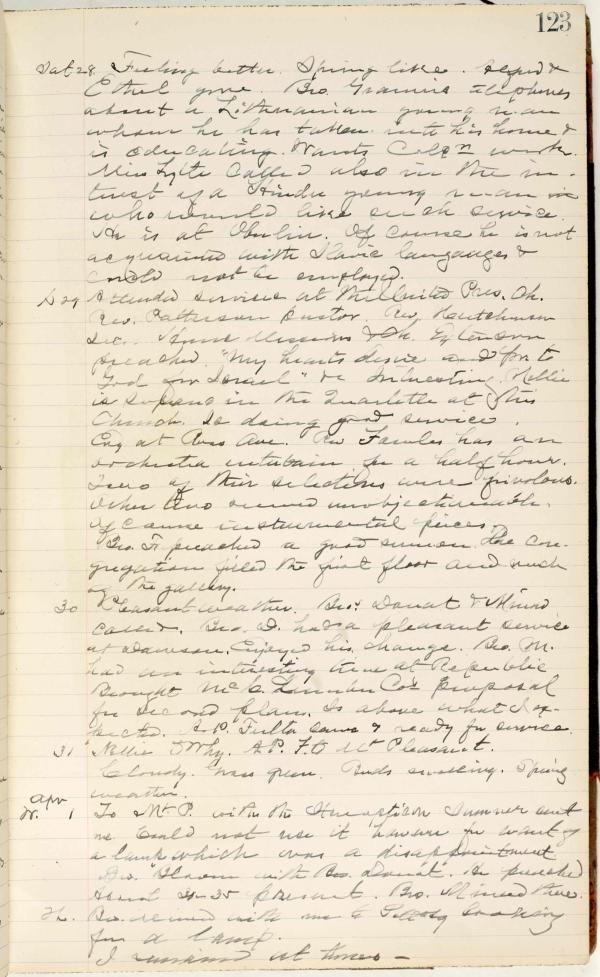 123
Sat 28. Feeling better. Spring like. &
Ethel gone. Bro. telephones
about a Lithuanian young man
whom he has taken into his home &
is educating. Wants work.
Miss Lytle called also in the in-
terest of a Hindu young man
who would like such service.
He is at Oberlin. Of course he is not
acquainted with Slavic languages &
could not be employed.
29 Attended services at the United Pres. Ch.
Rev. Patterson pastor. Rev. Hutchinson
Sec. Home Missions & Ch. Extension
preached. "My hearts desire and to
God for Israel" &c Interesting. Nellie
is soprano in the Quartette at this
Church. Is doing good service.
at Ross Ave. Rev Fowles has an
orchestra entertain for a half hour.
of their selections were frivolous.
Other two seemed unobjectionable.
Of course instrumental pieces.
Bro. F. preached a good sermon. The con-
gregation filled the first floor and much
of the gallery.
30 Pleasant weather. Bros. Donat &
called. Bro. D. had a pleasant service
at Dawson. Enjoyed his change. Bro. M.
had an interesting time at Republic
Brought Lumber Cos proposal
for second plan. Is above what I ex-
pected. A. P. & ready for service.
31 Nellie A.P. Mt Pleasant.
Cloudy. Grass green. Buds swelling. Spring
weather.
Apr
W. 1 To Mt P. with the sent
me. Could not use it however for want of
a lamp which was a disappointment
Bro. with Bro. Donat. He preached
about 35 present. Bro. there.
Th. with me to looking
for a lamp.
I remained at home —